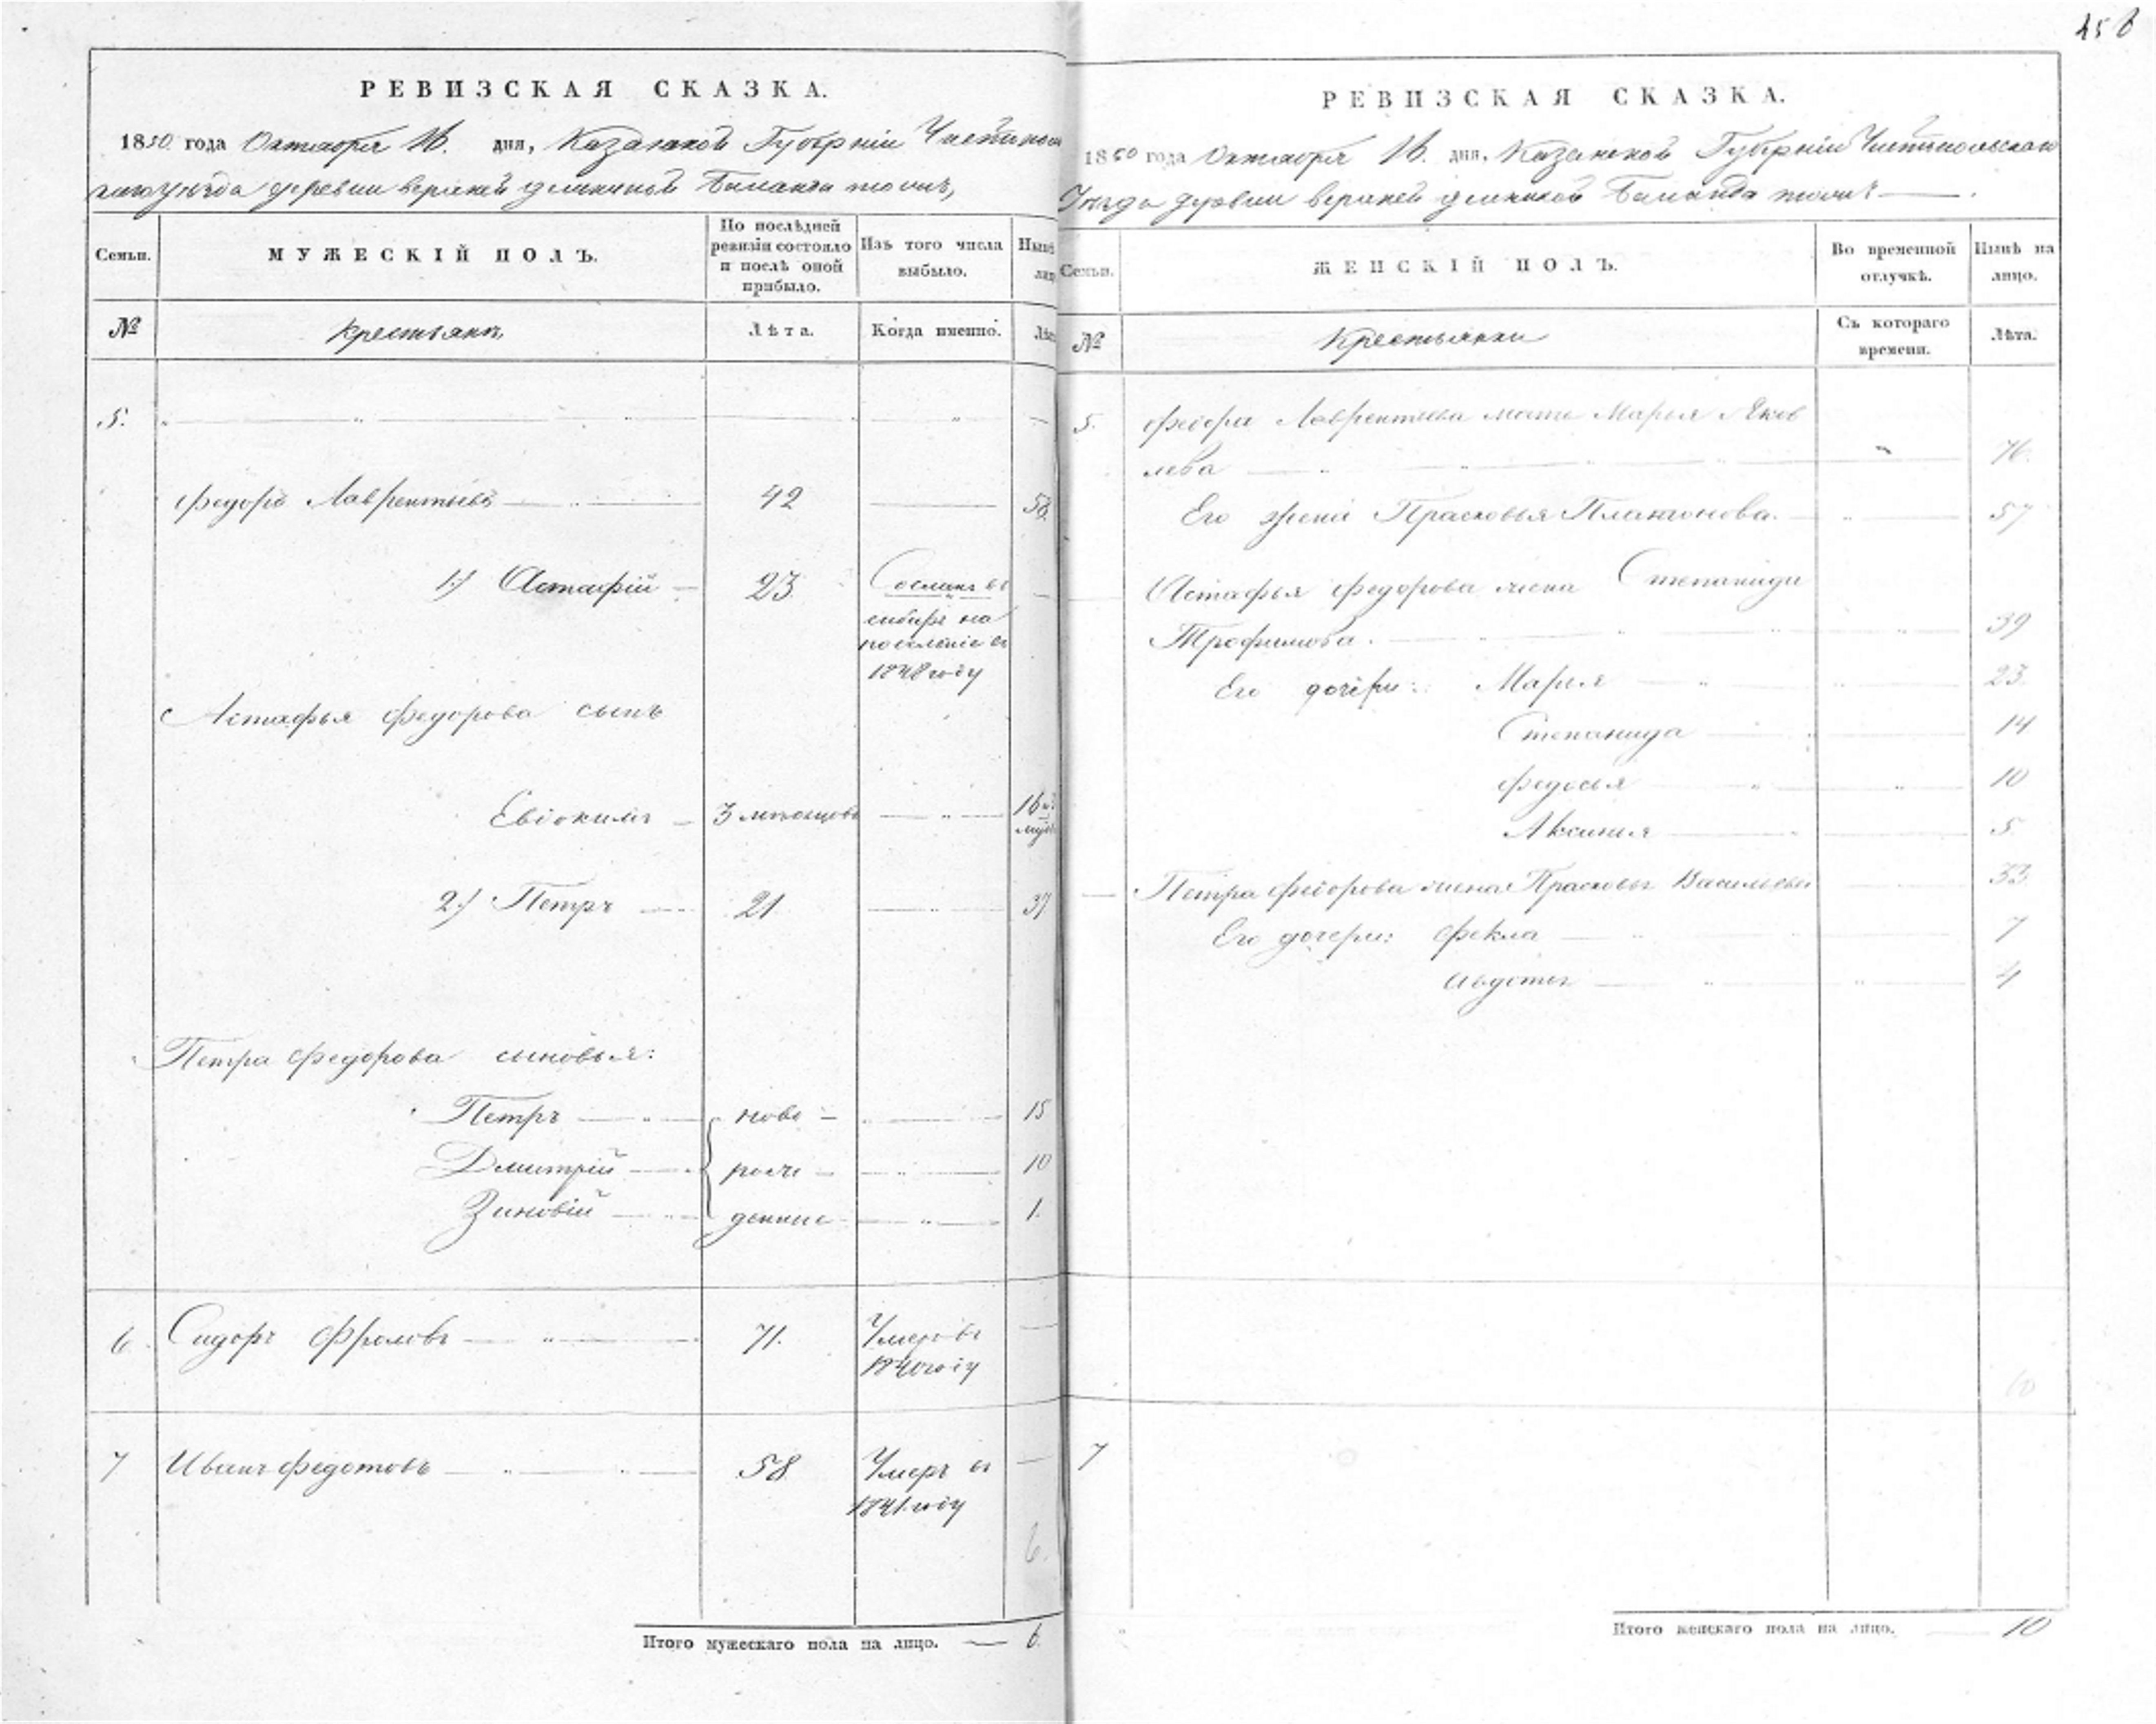 456
РЕВИЗСКАЯ СКАЗКА.
1850 года Октября 16. дня, Казанской Губернiи Чистополь
скаго уѣзда деревни верхней
Семьи.
МУЖЕСКIЙ ПОЛЪ.
По послѣдней ревизiи состояло и послѣ оной прибыло.
Изъ того числа выбыло.
№
Крестьянъ
Лѣта.
Когда именно.
5.
Федоръ Лаврентьевъ 42 58.
1.) Астафiй 23 Сосланъ въ
сибирь на
поселенiе въ
1848 году
Астафья Федорова сынъ
Евдокимъ 3 мѣсяцовъ 16
2.) Петръ 21 37
Петра Федорова сыновья:
Петръ ново 15
Дмитрiй рож 10
Зиновiй денные 1.
6. Сидоръ Фроловъ 71. Умеръ въ
1840 году
7 Иванъ Федотовъ 58 Умеръ въ
1841 году
6.
Итого мужескаго пола на лицо. 6.
РЕВИЗСКАЯ СКАЗКА.
1850 года Октября 16. дня, Казанской Губернiи Чистопольскаго
Уѣзда деревни верхней
Семьи.
ЖЕНСКIЙ ПОЛЪ.
Во временной отлучкѣ.
Нынѣ на лицо.
№
Крестьянки
Съ котораго времени.
Лѣта.
5. Федора Лаврентьева мать Марья Яков
лева 76.
Его жена Прасковья Платонова. 57
Астафья Федорова жена Степанида
Трофимова. 39
Его дочери: Марья 23
Степанида 14
Федосья 10
Аксинья 5
Петра Федорова жена Прасковья Васильева 33
Его дочери: Фекла 7
Авдотья 4
10
7
Итого женскаго пола на лицо. 10